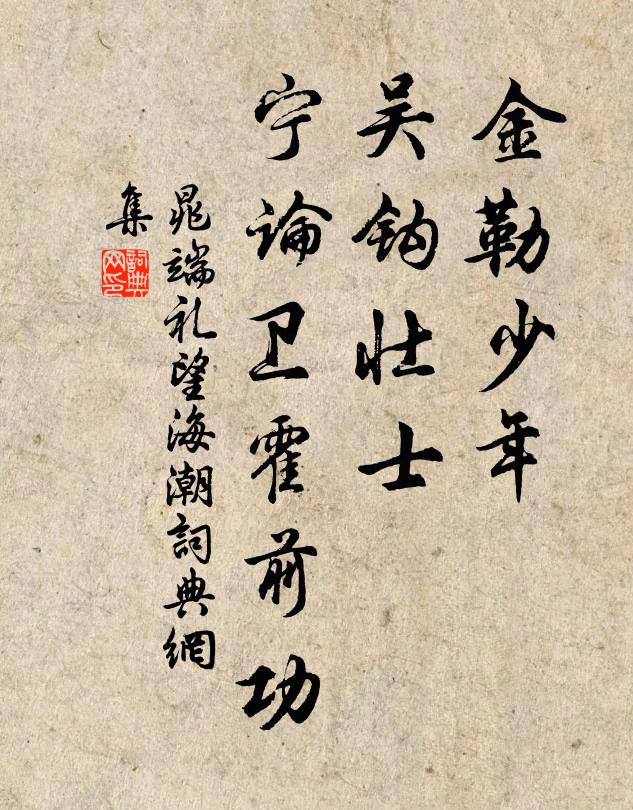 金勒少年
吴钩壮士
宁論卫霍前功
晁端礼望海潮詞典網
集
詞典
网印